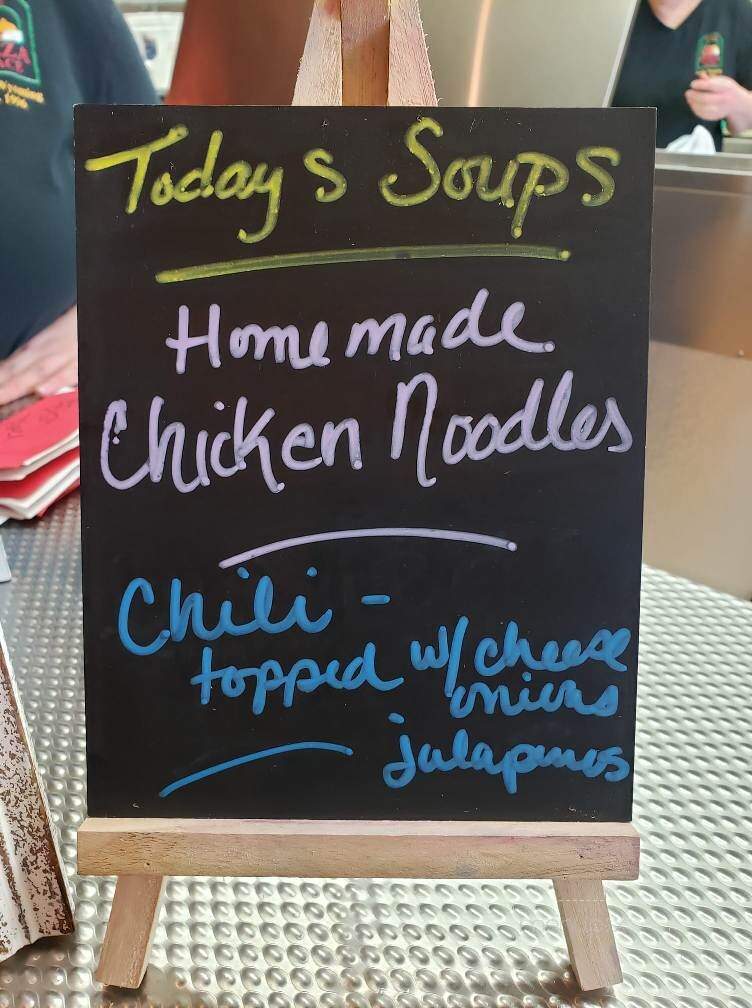 Todays Soups
Homemade
Chicken Noodles
Chili -
topped w/ cheese
onions
jalapenos